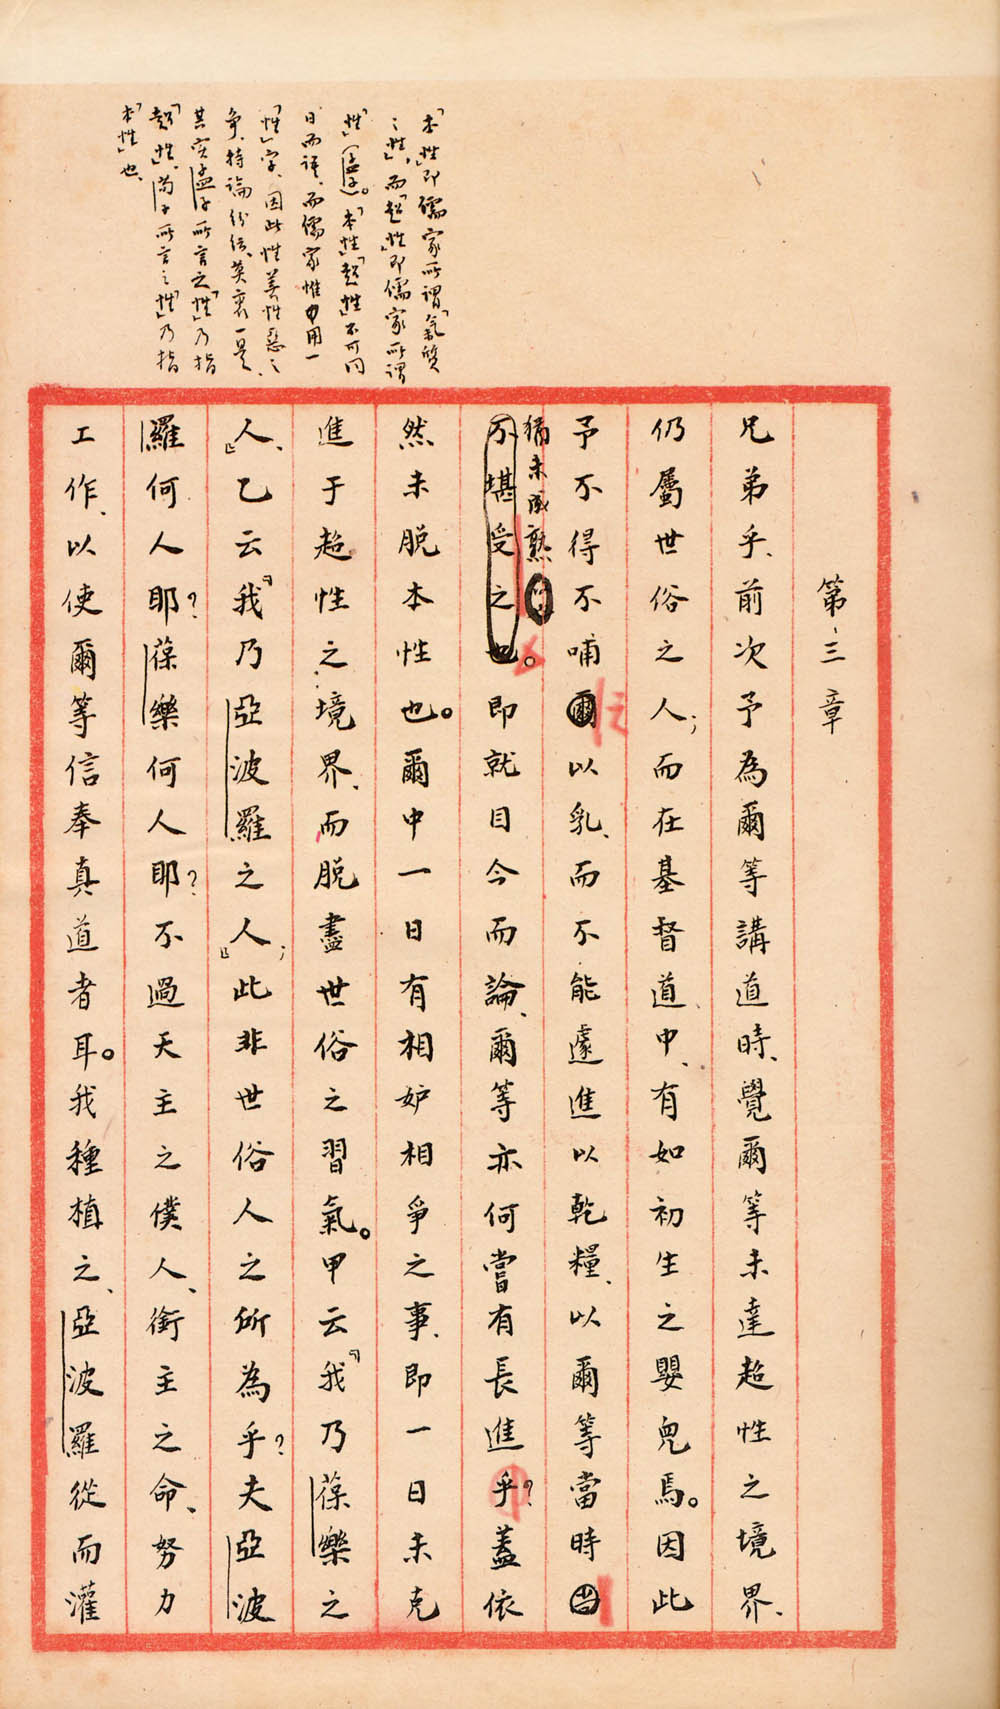 「本性」即儒家所謂「氣質
之性」，而「超性」即儒家所謂
「性」（孟子）。「本性」「超性」不可同
日而語、而儒家惟用一
「性」字、因此性善性惡之
爭、持論紛紜、莫衷一是、
其實孟子所言之「性」乃指
「超性」、荀子所言之「性」乃指
「本性」也、
第三章
兄弟乎、前次予為爾等講道時、覺爾等未達超性之境界、
仍屬世俗之人；而在基督道中、有如初生之嬰兒焉。因此
予不得不哺爾以乳、而不能遽進以乾糧、以爾等當時
猶未成熟
不堪受之也。即就目今而論、爾等亦何嘗有長進乎？蓋依
然未脫本性也。爾中一日有相妒相爭之事、即一日未克
進于超性之境界、而脫盡世俗之習氣。甲云『我乃葆樂之
人』、乙云『我乃亞波羅之人』；此非世俗人之所為乎？夫亞波
羅何人耶？葆樂何人耶？不過天主之僕人、銜主之命、努力
工作、以使爾等信奉真道者耳。我種植之、亞波羅從而灌